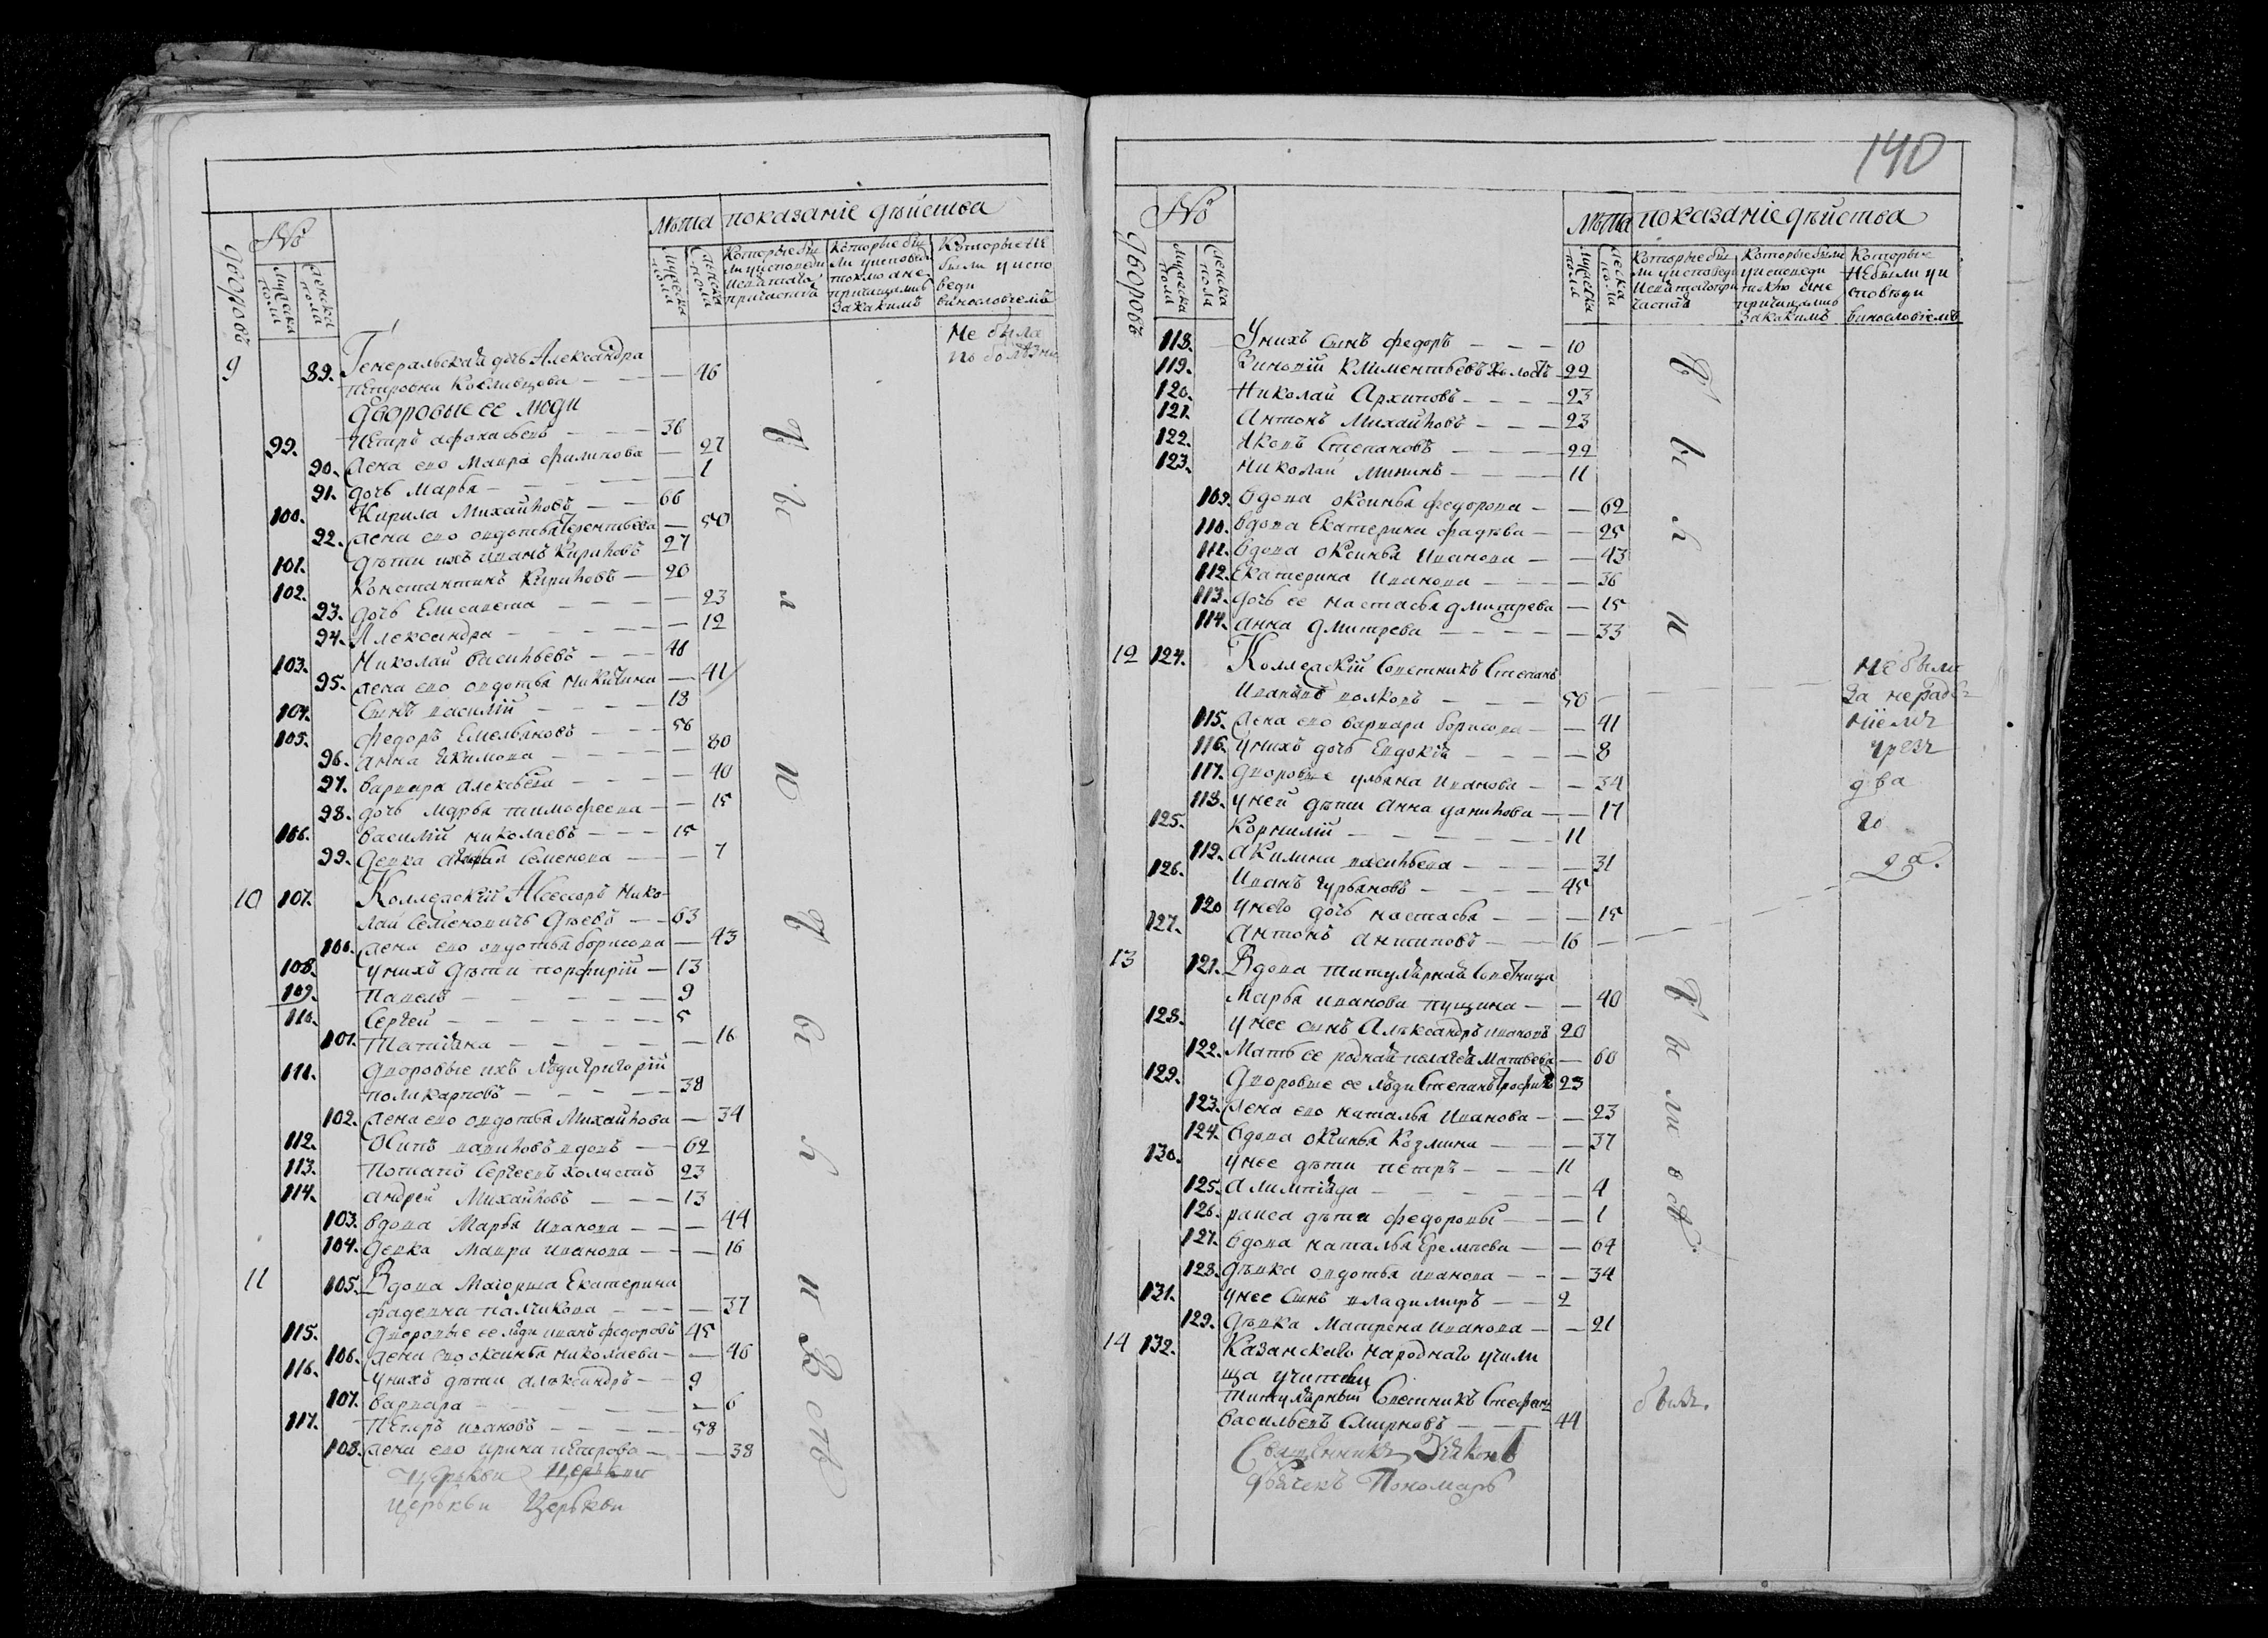 №
Лѣта показаніе дѣйства
дворовъ
мужеска пола
женска пола
мужеска пола
женска пола
Которые бы ли уисповеди исвятаго причастия
Которые бы ли уисповеди токмо а не причащались За какимъ
Которые не были уиспо веди винословіемъ
Не была по болѣзни
9 89. Генеральская дочь Александра
Петровна — 46
Дворовые ее люди
99. Петръ афонасьевъ — 36
90. жена ево Мавра филипова — 27
91. дочь Марья — 1
100. Кирила Михайловъ — 66
92. жена ево авдотья Терентьева — 50
101. дѣти ихъ иванъ Кириловъ 27
102. Константинъ Кириловъ — 20
93. дочь Елисавета — 23
94. Александра — 12
103. Николай васильевъ — 48
95. жена ево авдотья никитина — 41
104. сынъ василій — 18
105. федоръ Емельяновъ — 56
96. анна Якимова — 80
97. варвара алексѣева — 40
98. дочь марья тимофеева — 15
106. василій николаевъ — 15
99. девка Семенова — 7
10 107. Коллежскій Асессоръ Нико-
лай Семеновичь — 63
100. жена ево авдотья борисова — 43
108. унихъ дѣти порфирій — 13
109. павелъ — 9
110. Сергей — 5
101. Татияна — 16
111. дворовые ихъ люди григорій
поликарповъ — 38
102. жена ево авдотья Михайлова — 34
112. Осипъ вдовъ — 62
113. потапъ Сергеевъ холостъ 23
114. андрей Михайловъ — 13
103. вдова Марья иванова — 44
104. девка Мавра иванова — 16
11 105. Вдова Маіорша Екатерина
фадевна — 37
115. дворовые ее люди иванъ федоровъ 45
106. жена ево аксинья николаева — 46
116. унихъ дѣти александръ — 9
107. варвара — 6
117. Петръ ивановъ — 58
108. жена ево ирина петрова — 38
Церькви Церькви
Церькви Церькви
140
№
Лѣта показаніе дѣйства
дворовъ
мужеска пола
женска пола
мужеска пола
женска пола
Которые бы ли уисповеди исвятаго причастия
Которые были уисповеди токмо а не причащались За какимъ
Которые Небыли уи сповѣди винословіемъ
118. Унихъ сынъ федоръ — 10
119. Зиновій Климентьевъ холостъ — 22
120. Николай Архиповъ — 23
121. Антонъ Михайловъ — 23
122. Яковъ Степановъ — 22
123. николай Мининъ — 11
109. вдова аксинья федорова — 62
110. вдова Екатерина фадѣева — 25
111. вдова аксинья иванова — 43
112. Екатерина иванова — 36
113. дочь ее настасья дмитрева — 15
114. анна дмитрева — 33
12 124. Коллежскій Советникъ Степанъ
Иванывъ волковъ — 50
115. жена ево варвара борисова — 41
116. унихъ дочь Евдокія — 8
117. дворовые ульяна иванова — 34
118. уней дѣти анна данилова — 17
125. Корнилій — 11
119. акилина васильева — 31
126. иванъ гурьяновъ — 45
120 унего дочь настасья — 15
127. антонъ антиповъ — 16
небыли
за нераде-
ніемъ
чрезъ
два
го
да.
13 121. Вдова титулярная Советница
Марья иванова пущина — 40
128. унее сынъ Александръ ивановъ 20
122. Мать ее родная пелагея Матвеева — 60
129. Дворовые ее люди Степанъ 23
123. жена ево наталья иванова — 23
124. вдова аксинья Козмина — 37
130. унее дѣти петръ — 11
125. алимпіяда — 4
126. раиса дѣти федоровы — 1
127. вдова наталья Еремѣева — 64
128. дѣвка авдотья иванова — 34
131. унее сынъ владимиръ — 2
129. дѣвка Матрена иванова — 21
14 132. Казанскаго народнаго учили
ща учитель
титулярный Советникъ Стефанъ
васильевъ Смирновъ — 44
былъ.
Священникъ Діяконъ
Дьячекъ Пономарь